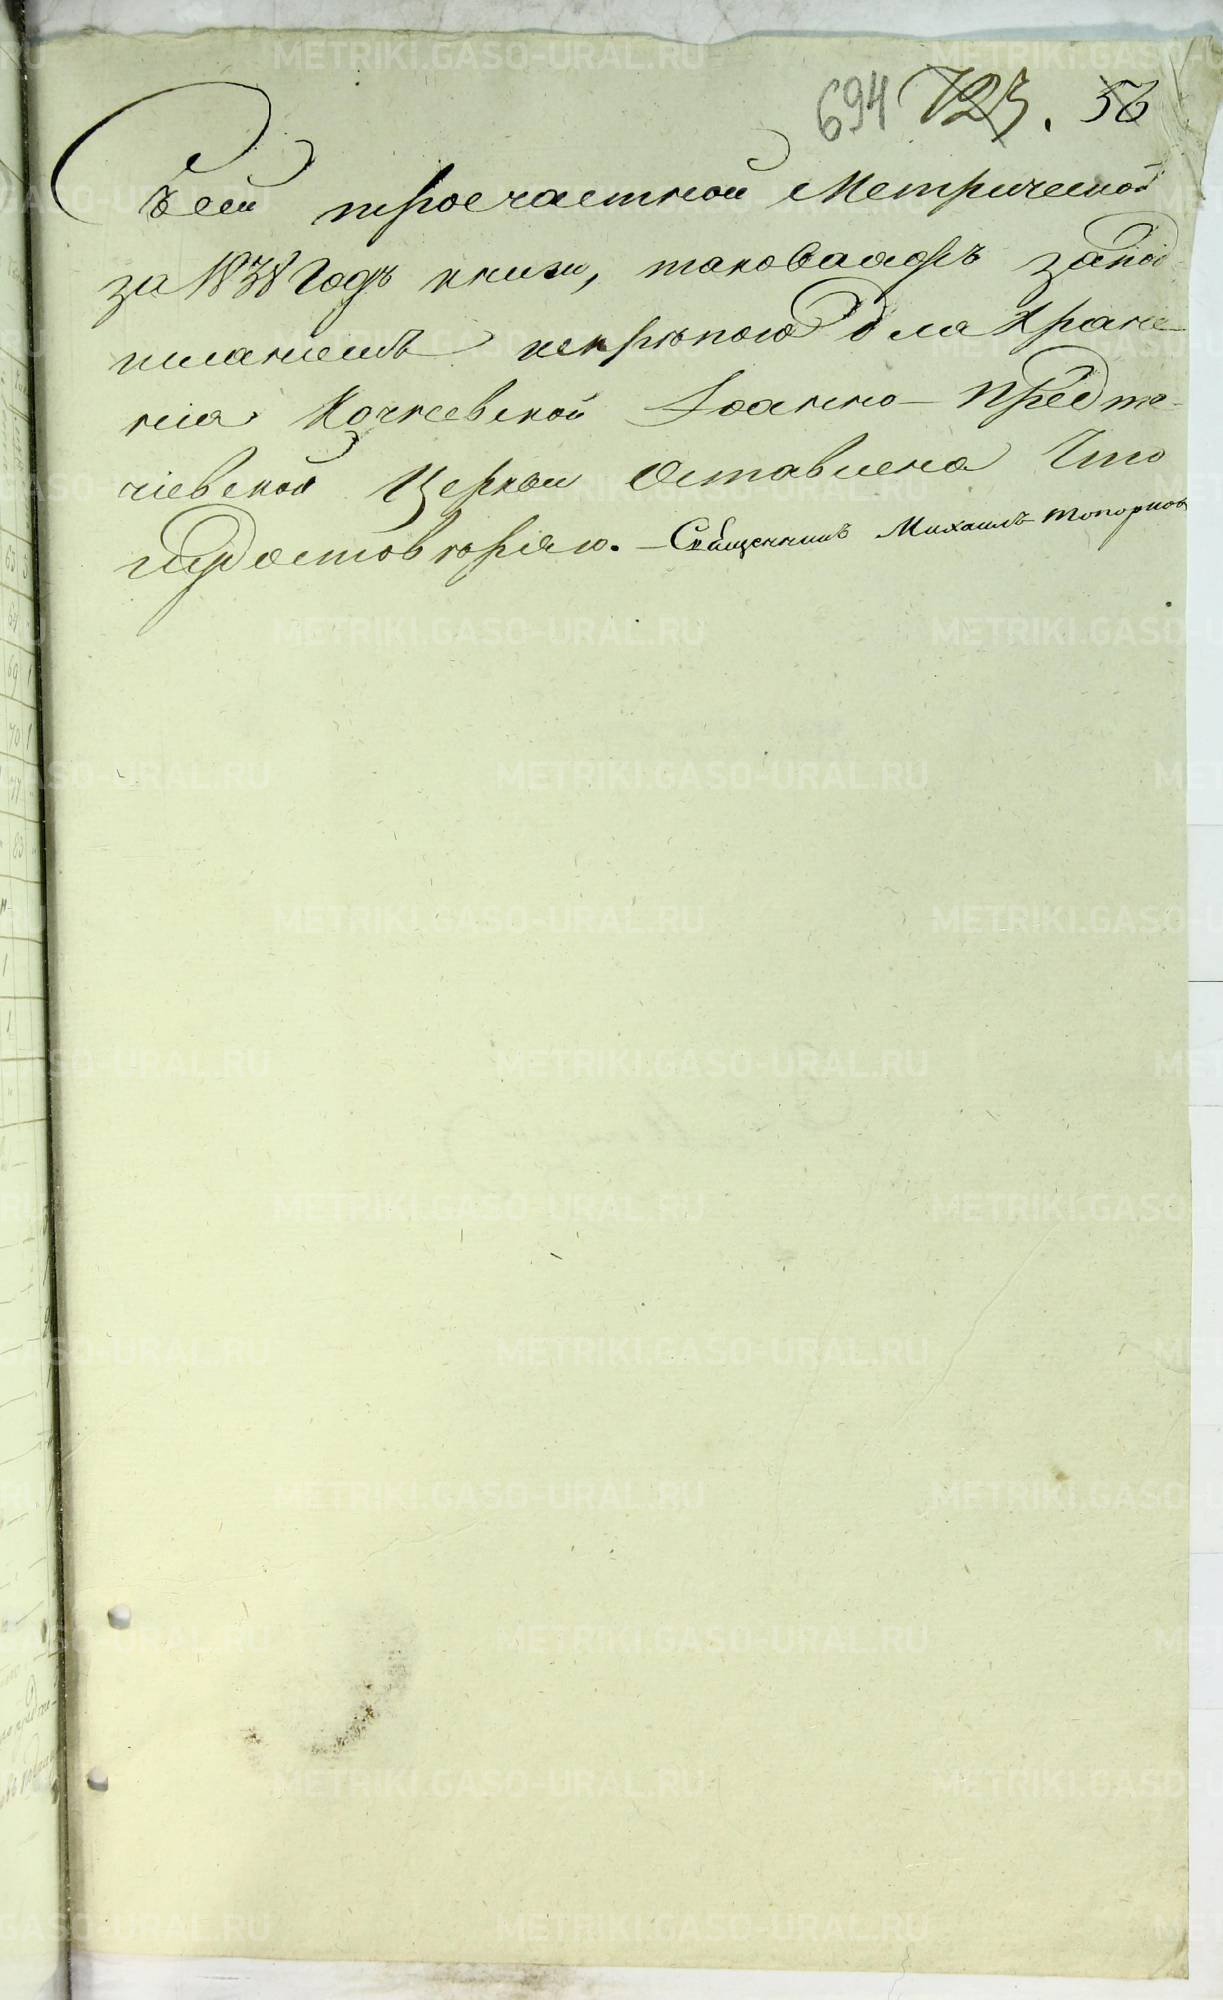 694 723. 56
Съ сей троечастной Метрической
за 1838 Годъ книги, таковаяжъ запод
писаниемъ искрѣпою для Хране
ния Кочневской Іоанно-Предте-
чевской Церкви Оставлена Что
удостовѣряю. — Священникъ Михаилъ Топорков
METRIKI.GASO-URAL.RU